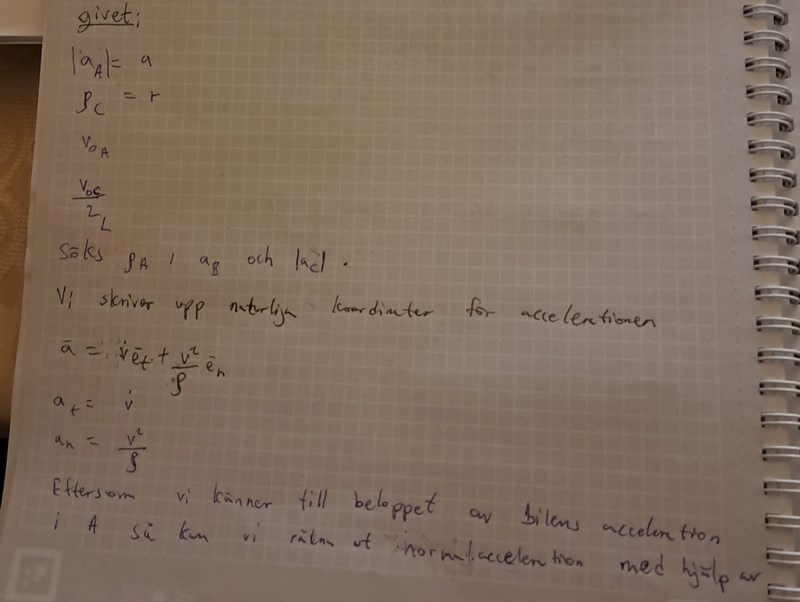 givet;
|a_A| = a
ρ_C = r
v_0A
v_0C / 2
L
Söks ρ_A , a_B och |a_C| .
Vi skriver upp naturliga koordinater för accelerationen
ā = v̇ ē_t + v²/ρ ē_n
a_t = v̇
a_n = v²/ρ
Eftersom vi känner till beloppet av bilens acceleration
i A så kan vi räkna ut normalacceleration med hjälp av